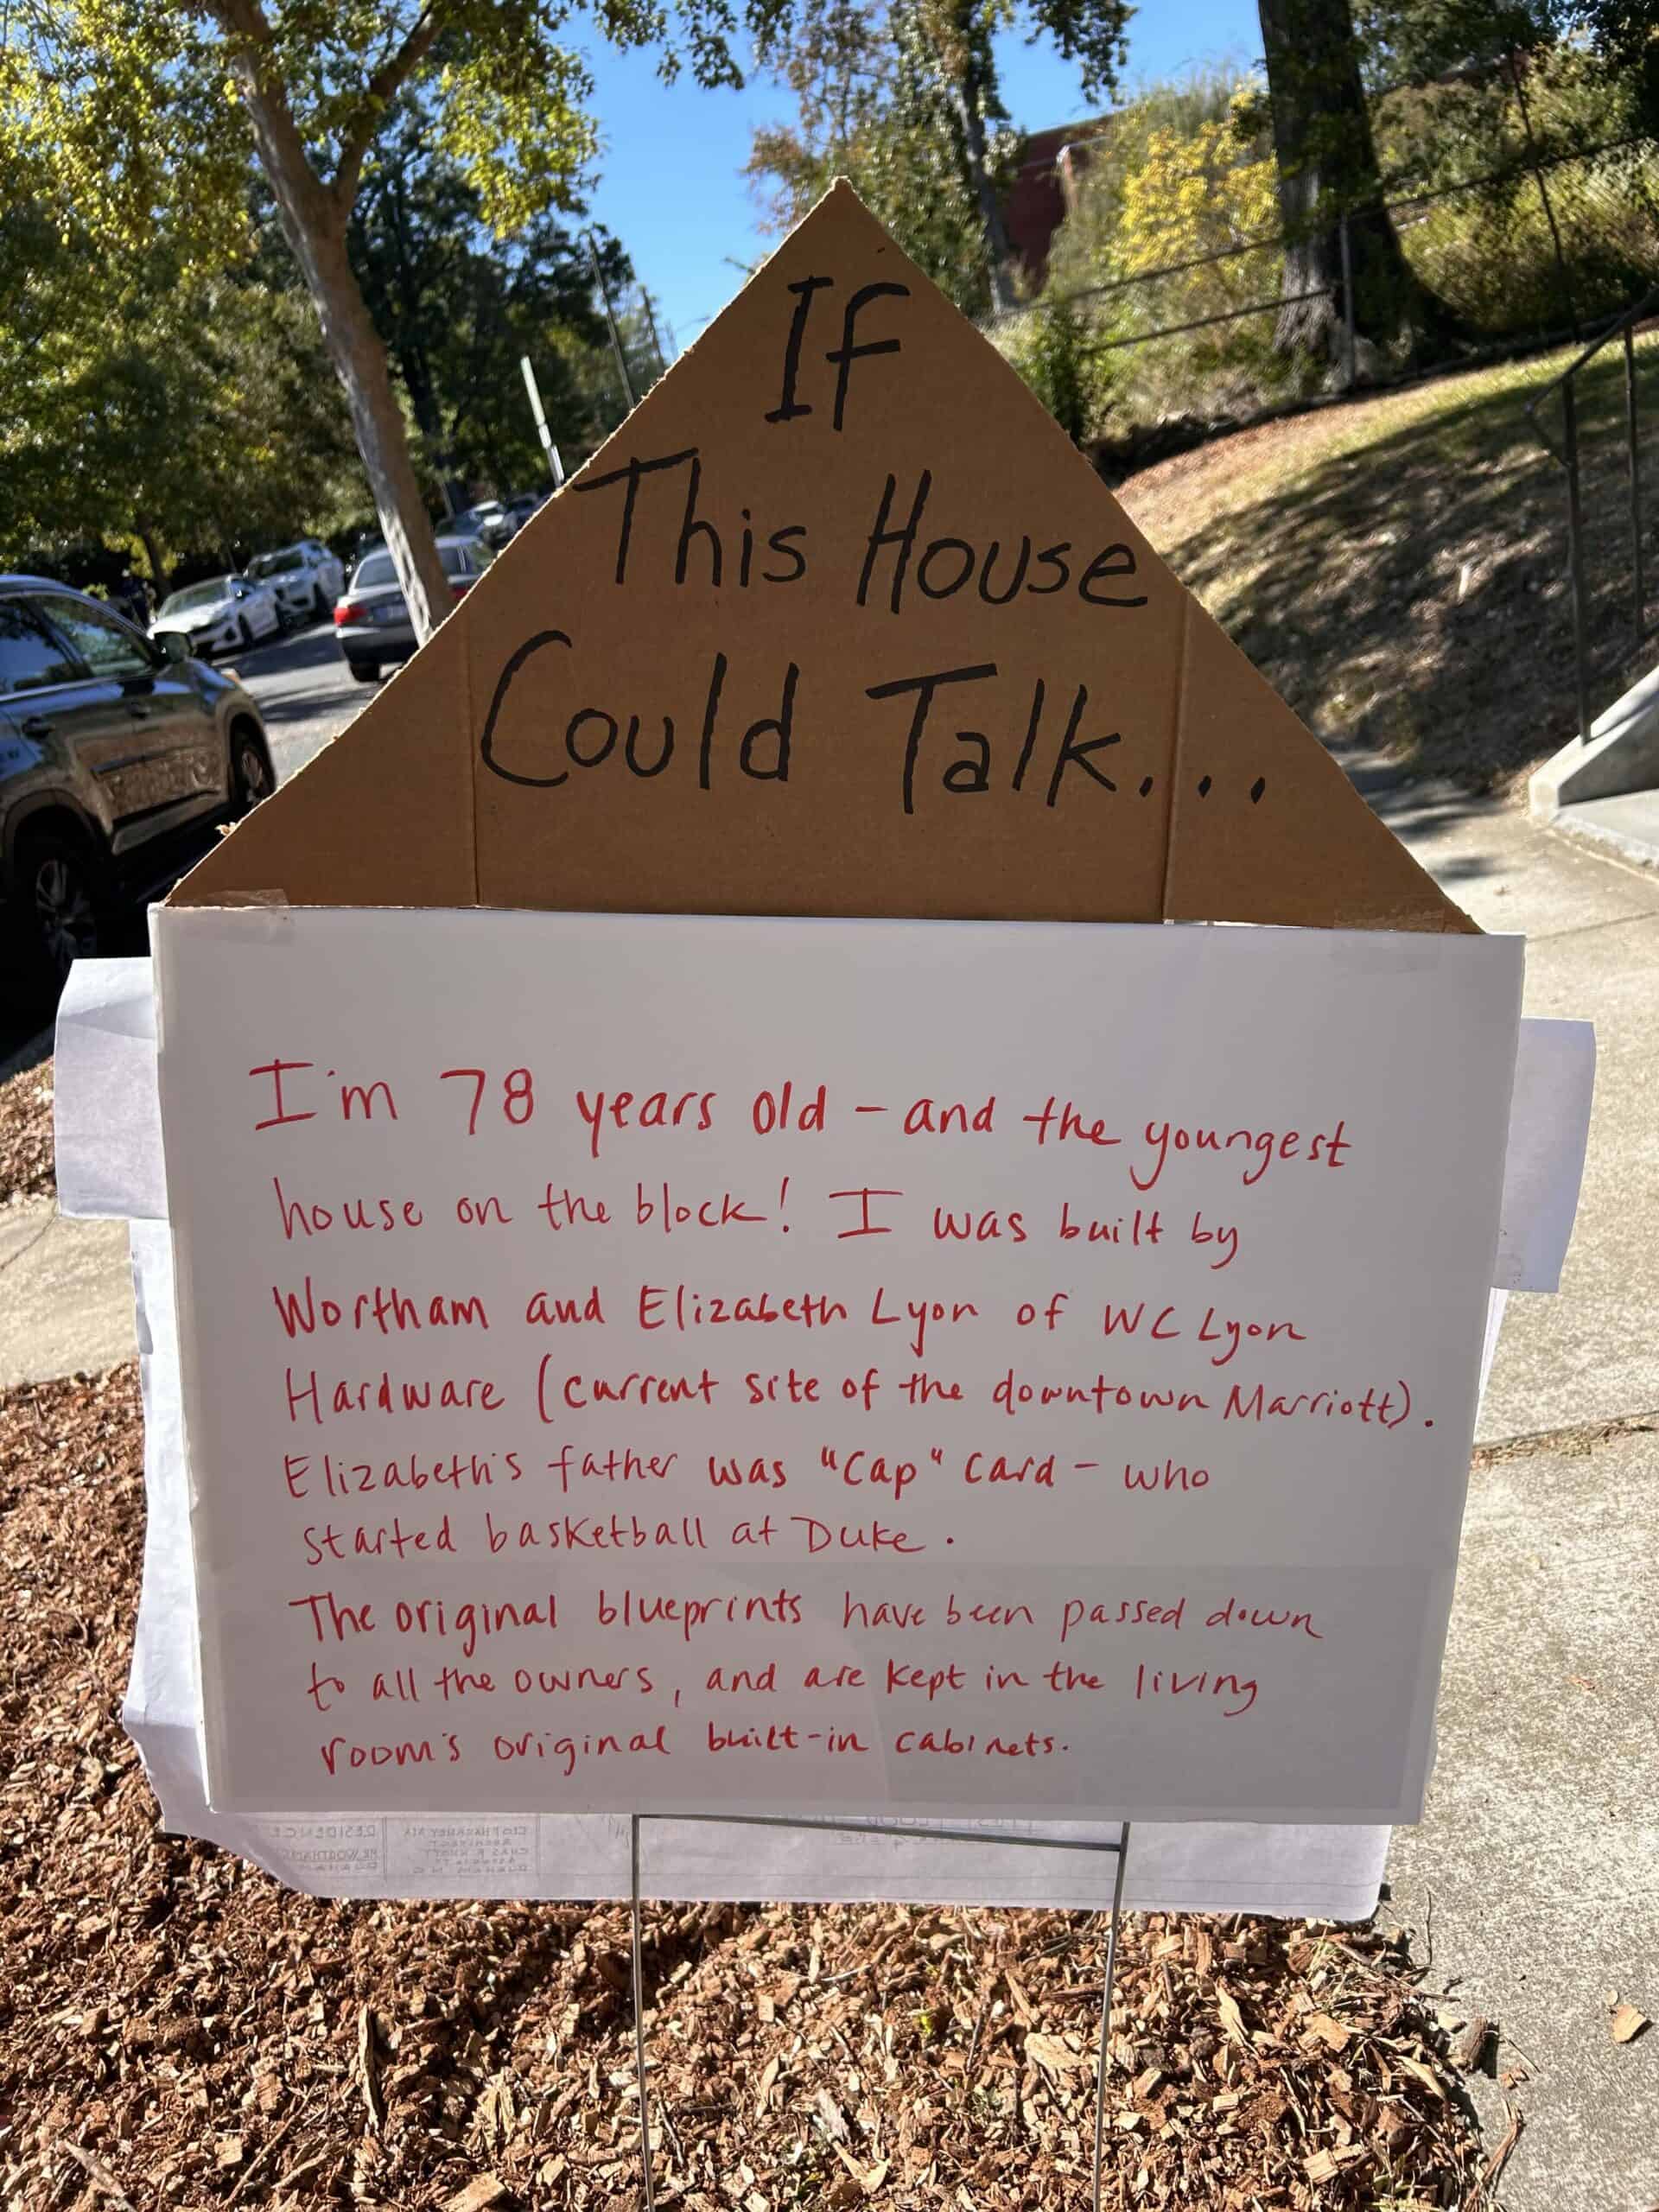 If
This House
Could Talk...
I'm 78 years old - and the youngest
house on the block! I was built by
Wortham and Elizabeth Lyon of WC Lyon
Hardware (current site of the downtown Marriott).
Elizabeth's father was "Cap" Card - who
started basketball at Duke.
The original blueprints have been passed down
to all the owners, and are kept in the living
room's original built-in cabinets.
RESIDENCE
ARCHITECT